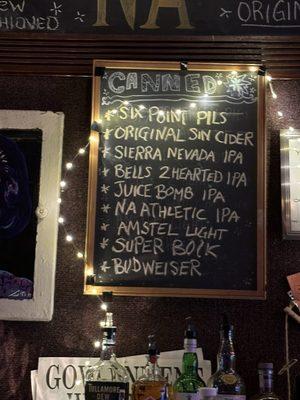 NA
ORIGIN
CANNED
SIX POINT PILS
ORIGINAL SIN CIDER
SIERRA NEVADA IPA
BELLS 2 HEARTED IPA
JUICE BOMB IPA
NA ATHLETIC IPA
AMSTEL LIGHT
SUPER BOCK
BUDWEISER
GOV
TULLAMORE
DEW